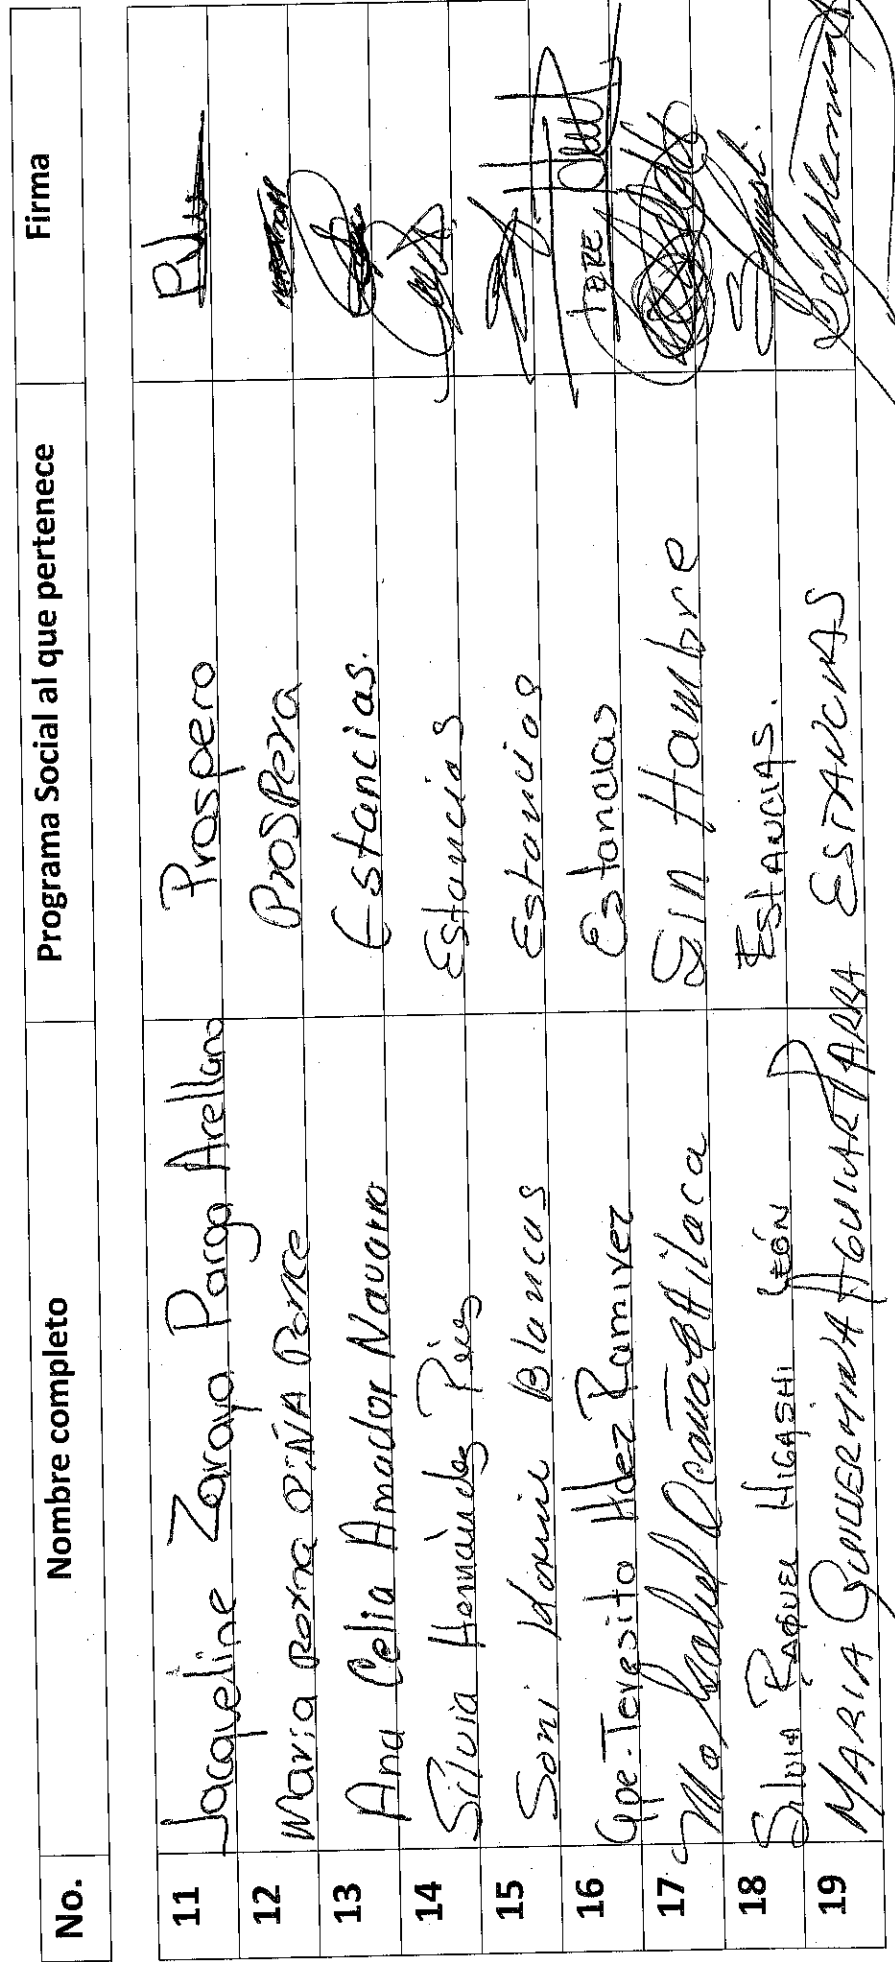 No. Nombre completo Programa Social al que pertenece Firma
11 Jacqueline Zaraya Parga Arellano Prospero
12 Maria Roxna PIÑA Ponce ProsPera
13 Ana Celia Amador Navarro Estancias.
14 Silvia Hernández Estancias
15 Soni Blancas Estancias
16 Gpe. Teresita Hdez Ramirez Estancias
17 Ma Isabel Sin Hambre
18 Silvia RAQUEL HIGASHI LEÓN ESTANCIAS.
19 MARIA GUILLERMINA AGUILAR PARRA ESTANCIAS